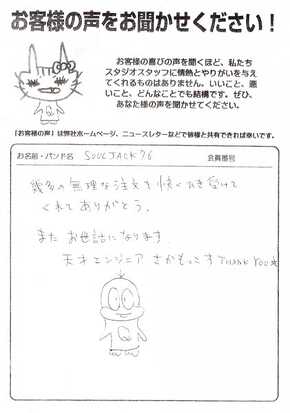 お客様の声をお聞かせください！
お客様の喜びの声を聞くほど、私たち
スタジオスタッフに情熱とやりがいを与え
てくれるものはありません。いいこと、悪
いこと、どんなことでも結構です。ぜひ、
あなた様の声を聞かせてください。
「お客様の声」は弊社ホームページ、ニュースレターなどで皆様と共有できれば幸いです。
お名前・バンド名 SOUL JACK 76 会員番号
幾多の無理な注文を快くひき受けて
くれてありがとう。
また お世話になります
天才エンジニア さかもっこす THANK YOU★